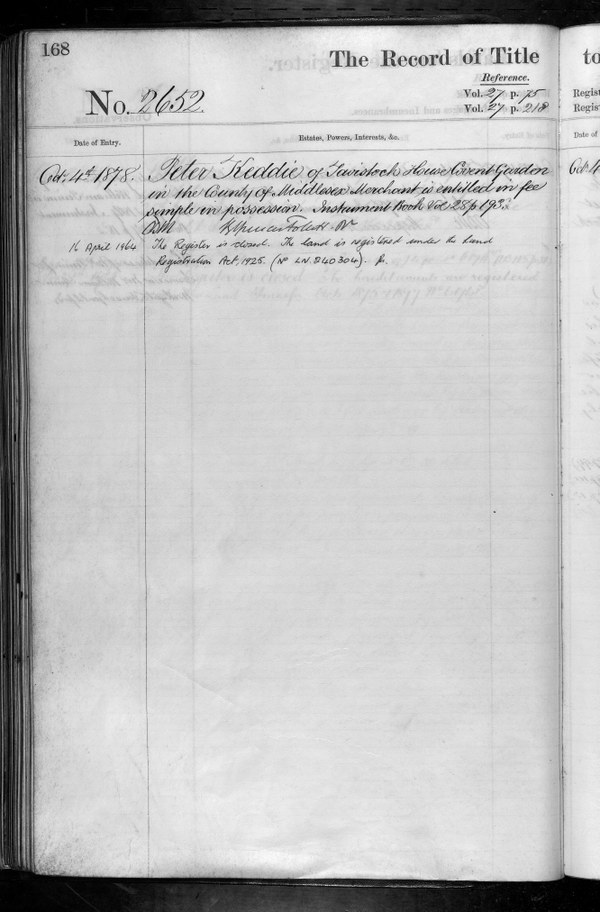 168
The Record of Title
Reference.
No. 2652.
Vol. 27 p. 75
Vol. 27 p. 218
Date of Entry.
Estates, Powers, Interests, &c.
Oct. 4th 1878. Peter Keddie of Tavistock House Covent Garden
in the County of Middlesex Merchant is entitled in fee
simple in possession. Instrument Book Vol 28 p 193.
16 April 1964 The Register is closed. The land is registered under the Land
Registration Act, 1925. (No LN. 240304).
to
Regist
Regist
Date of
Oct. 4